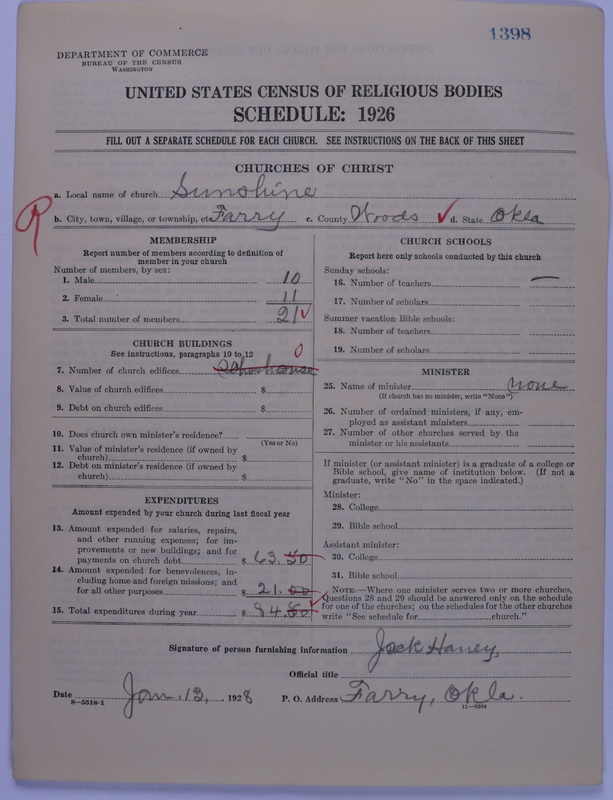 1398
DEPARTMENT OF COMMERCE
BUREAU OF THE CENSUS
WASHINGTON
UNITED STATES CENSUS OF RELIGIOUS BODIES
SCHEDULE: 1926
FILL OUT A SEPARATE SCHEDULE FOR EACH CHURCH. SEE INSTRUCTIONS ON THE BACK OF THIS SHEET
CHURCHES OF CHRIST
a. Local name of church Sunshine
R
b. City, town, village, or township, etc. Farry c. County Woods ✓ d. State Okla
MEMBERSHIP
Report number of members according to definition of
member in your church
Number of members, by sex:
1. Male 10
2. Female 11
3. Total number of members 21 ✓
CHURCH BUILDINGS
See instructions, paragraphs 10 to 12
0
7. Number of church edifices
8. Value of church edifices $
9. Debt on church edifices $
10. Does church own minister's residence?
(Yes or No)
11. Value of minister's residence (if owned by
church) $
12. Debt on minister's residence (if owned by
church) $
EXPENDITURES
Amount expended by your church during last fiscal year
13. Amount expended for salaries, repairs,
and other running expenses; for im-
provements or new buildings; and for
payments on church debt $ 63.50
14. Amount expended for benevolences, in-
cluding home and foreign missions; and
for all other purposes $ 21.00
15. Total expenditures during year $ 84.50 ✓
CHURCH SCHOOLS
Report here only schools conducted by this church
Sunday schools:
16. Number of teachers —
17. Number of scholars
Summer vacation Bible schools:
18. Number of teachers
19. Number of scholars
MINISTER
25. Name of minister none
(If church has no minister, write "None")
26. Number of ordained ministers, if any, em-
ployed as assistant ministers
27. Number of other churches served by the
minister or his assistants
If minister (or assistant minister) is a graduate of a college or
Bible school, give name of institution below. (If not a
graduate, write "No" in the space indicated.)
Minister:
28. College
29. Bible school
Assistant minister:
30. College
31. Bible school
NOTE.—Where one minister serves two or more churches,
Questions 28 and 29 should be answered only on the schedule
for one of the churches; on the schedules for the other churches
write "See schedule for church."
Signature of person furnishing information Jack Haney,
Official title
Date Jan. 13, 1928 P. O. Address Farry, Okla.
8—5518-1 11—9204